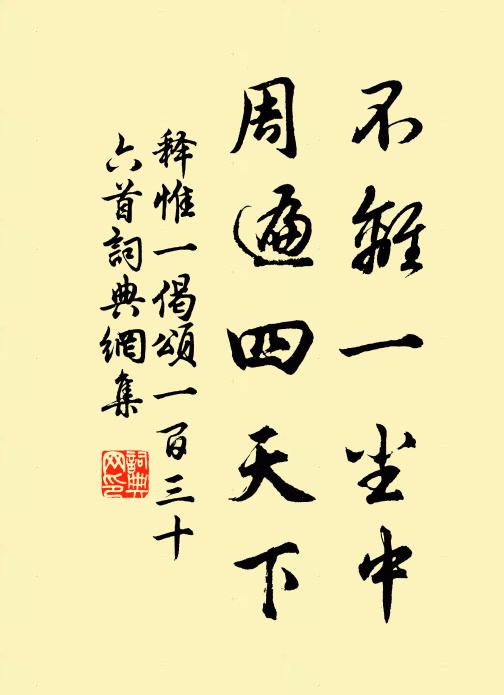 不離一尘中
周遍四天下
释惟一偈頌一百三十
六首詞典網集
詞典
网印